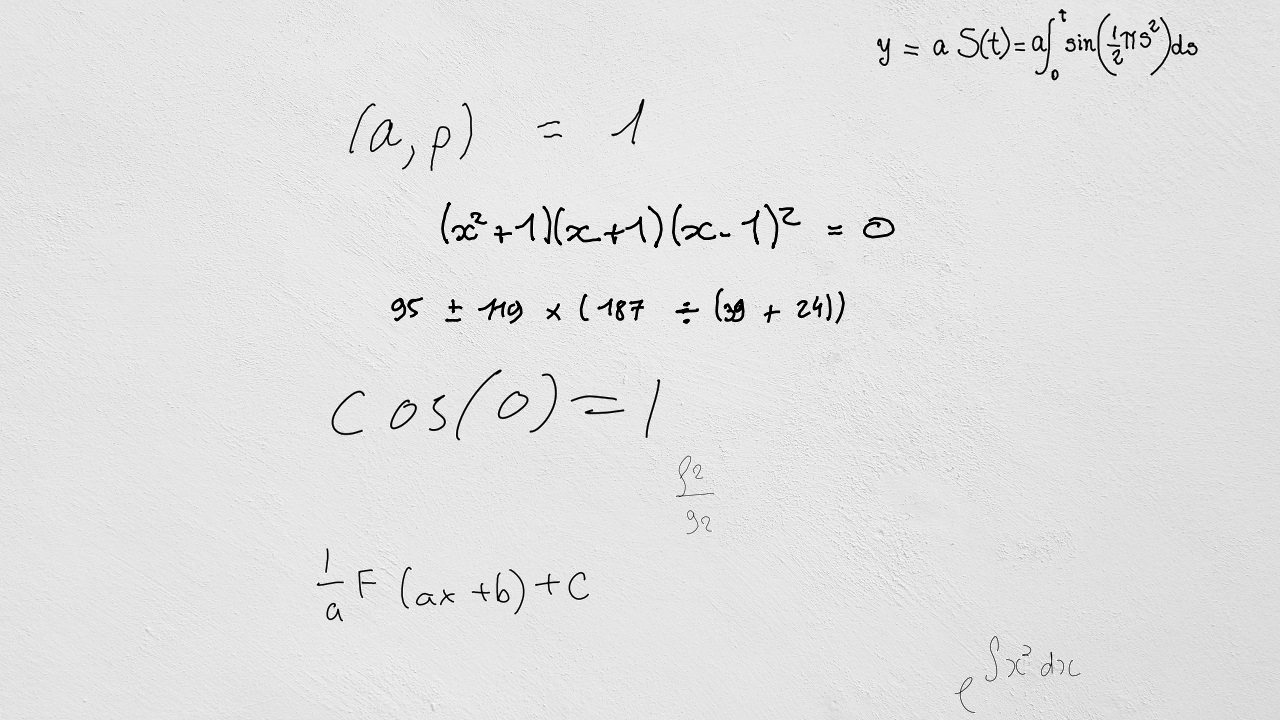 y = a S(t) = a∫₀ᵗ sin(½πs²)ds
(a, p) = 1
(x² + 1)(x + 1)(x - 1)² = 0
95 ± 119 × (187 ÷ (39 + 24))
cos(0) = 1
ρ₂/g₂
1/a F (ax + b) + C
e^∫x² dx